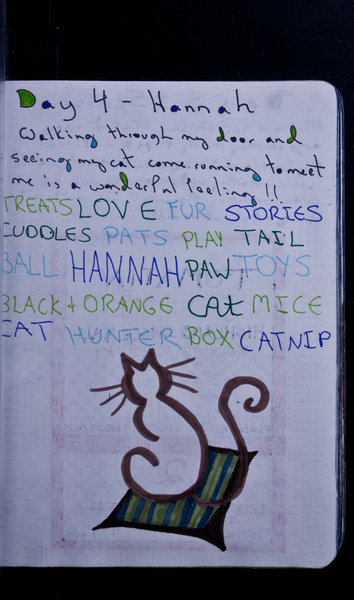 Day 4 - Hannah
Walking through my door and
seeing my cat come running to meet
me is a wonderful feeling!!
TREATS LOVE FUR STORIES
CUDDLES PATS PLAY TAIL
BALL HANNAH PAW TOYS
BLACK + ORANGE CAt MICE
CAT HUNTER BOX CATNIP